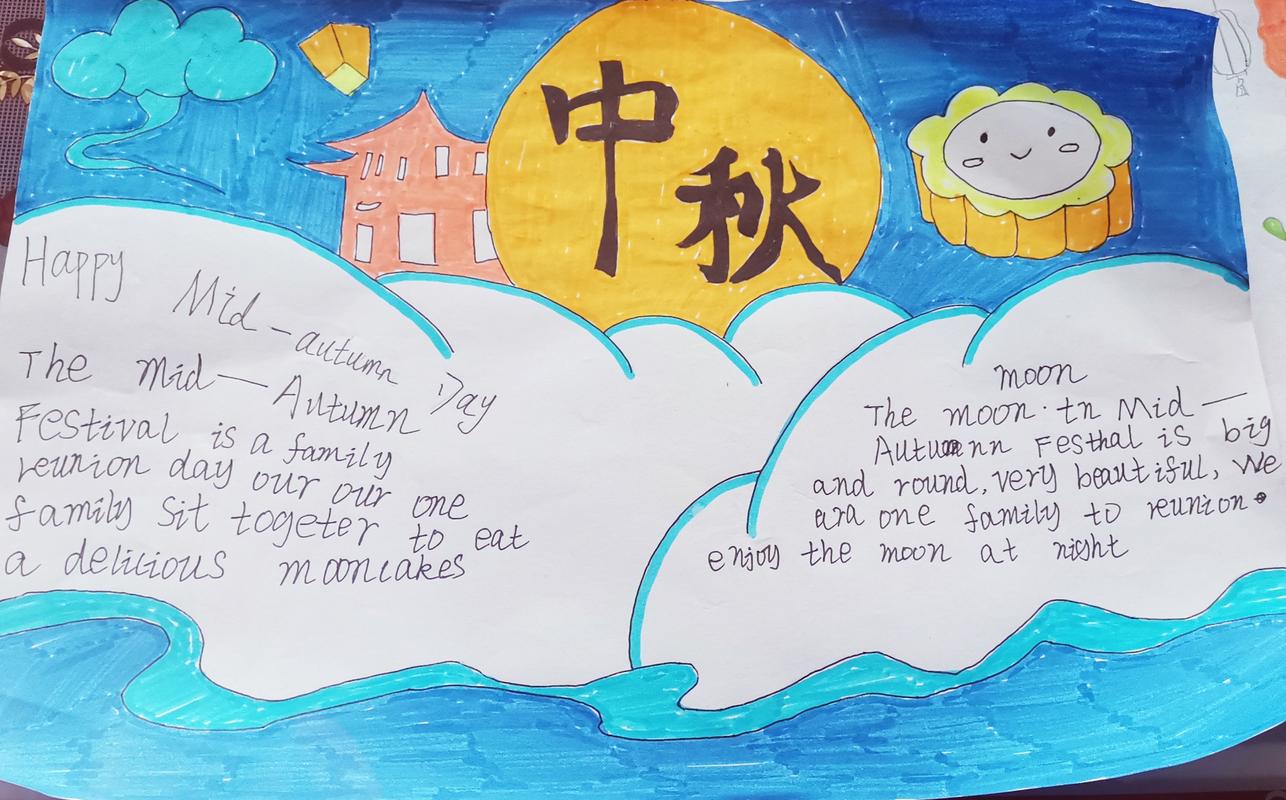 中秋
Happy Mid-autumn Day
The Mid-Autumn
Festival is a family
reunion day our our one
family sit togeter to eat
a delicious mooncakes
moon
The moon tn Mid-
Autumnn Festhal is big
and round, very beautiful, We
ara one family to reunion.
enjoy the moon at night